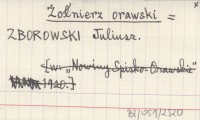 Żołnierz orawski =
ZBOROWSKI Juliusz.
[w: „Nowiny Spisko-Orawskie"
1920.]